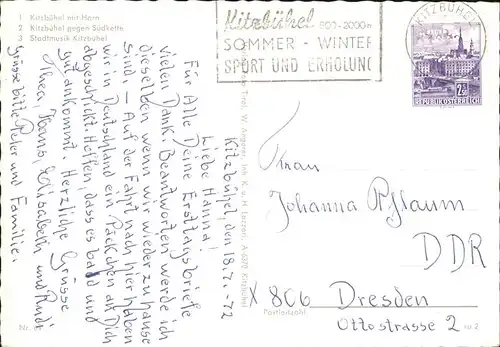 1 Kitzbühel mit Horn
2 Kitzbühel gegen Südkette
3 Stadtmusik Kitzbühel
Kitzbühel 800-2000m
SOMMER - WINTER
SPORT UND ERHOLUNG
KITZBÜHEL
2S
REPUBLIK ÖSTERREICH
Kitzbühel, den 18.7.-72
Liebe Hanna!
Für Alle Deine Ersttagsbriefe
vielen Dank. Beantworten werde ich
dieselben wenn wir wieder zuhause
sind. - Auf der Fahrt nach hier haben
wir in Deutschland ein Päckchen an Dich
abgeschickt. Hoffen, dass es bald und
gut ankommt. Herzliche Grüsse
Thea, Hans, Elisabeth und Rudi
Grüsse bitte Peter und Familie.
Frau
Johanna Pflaum
DDR
X 806 Dresden
Postleitzahl
Ottostrasse 2
Nr.